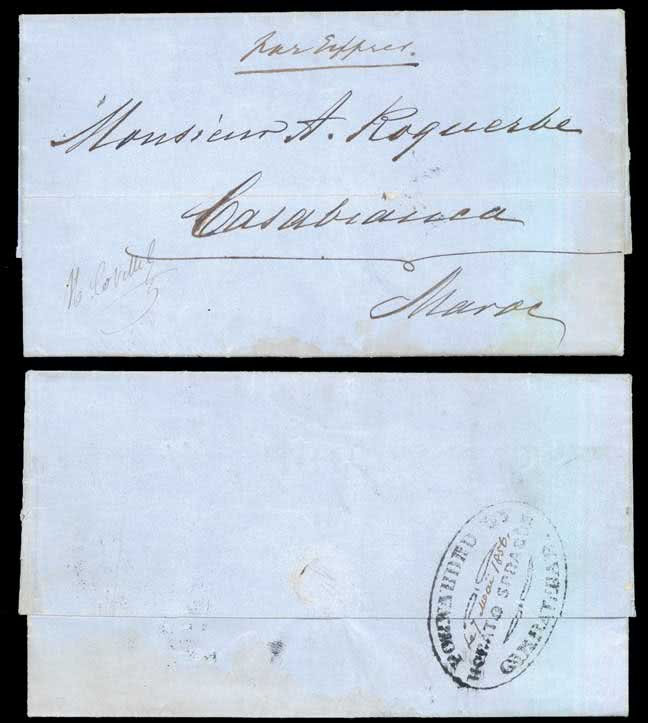 par Exprès.
Monsieur A. Roquerbe
Casabianca
Maroc
FORWARDED BY
7 Mai 1856.
HORATIO SPRAGUE
GIBRALTAR.